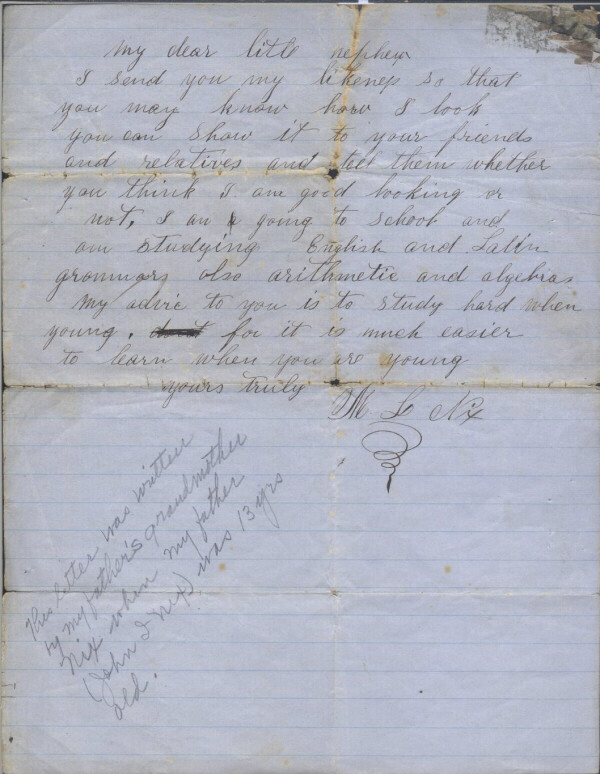 My dear litle nephew
I send you my likeness so that
you may know how I look
you can show it to your friends
and relatives and tell them whether
you think I am good looking or
not, I am going to school and
am studying English and Latin
grammars also arithmetic and algebras
My advic to you is to study hard when
young. for it is much easier
to learn when you are young
yours truly
M L Nix
This letter was written
by my father's grandmother
Nix when my father
(John I Nix) was 13 yrs
old.